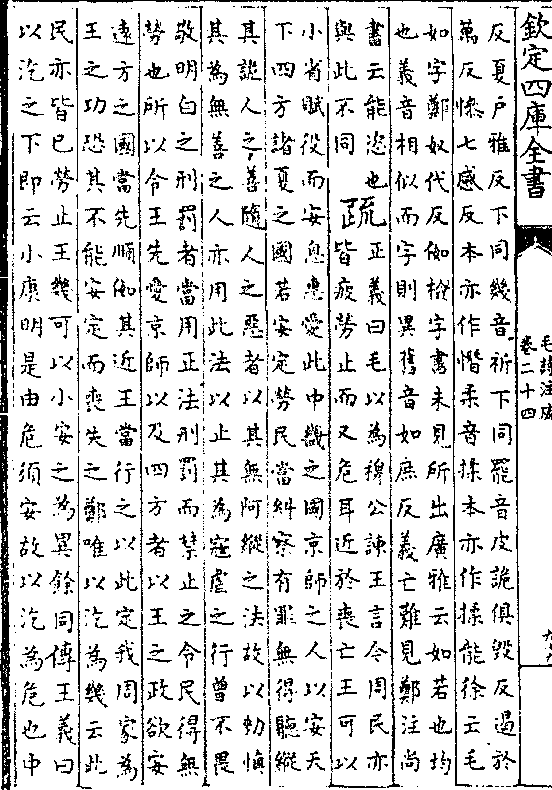 欽定四庫全書
毛詩注疏
卷二十四
反夏户雅反下同幾音祈下同罷音皮詭俱毀反遏於
萬反慘七感反本亦作憯柔音揉本亦作揉能徐云毛
如字鄭奴代反伽檢字書未見所出廣雅云如若也均
也義音相似而字則異舊音如庶反義亡難見鄭注尚
書云能恣也
與此不同
疏
正義曰毛以為穆公諫王言今周民亦
皆疲勞止而又危耳近於喪亡王可以
小省賦役而安息惠愛此中畿之國京師之人以安天
下四方諸夏之國若安定勞民當糾察有罪無得聽縱
其詭人之善隨人之惡者以其無阿縱之法故以勑慎
其為無善之人亦用此法以止其為寇虐之行曾不畏
敬明白之刑罰者當用正法刑罰而禁止之令民得無
勞也所以令王先愛京師以及四方者以王之政欲安
遠方之國當先順伽其近王當行之以此定我周家為
王之功恐其不能安定而喪失之鄭唯以汔為幾云此
民亦皆已勞止王幾可以小安之為異餘同傳王義曰
以汔之下即云小康明是由危須安故以汔為危也中